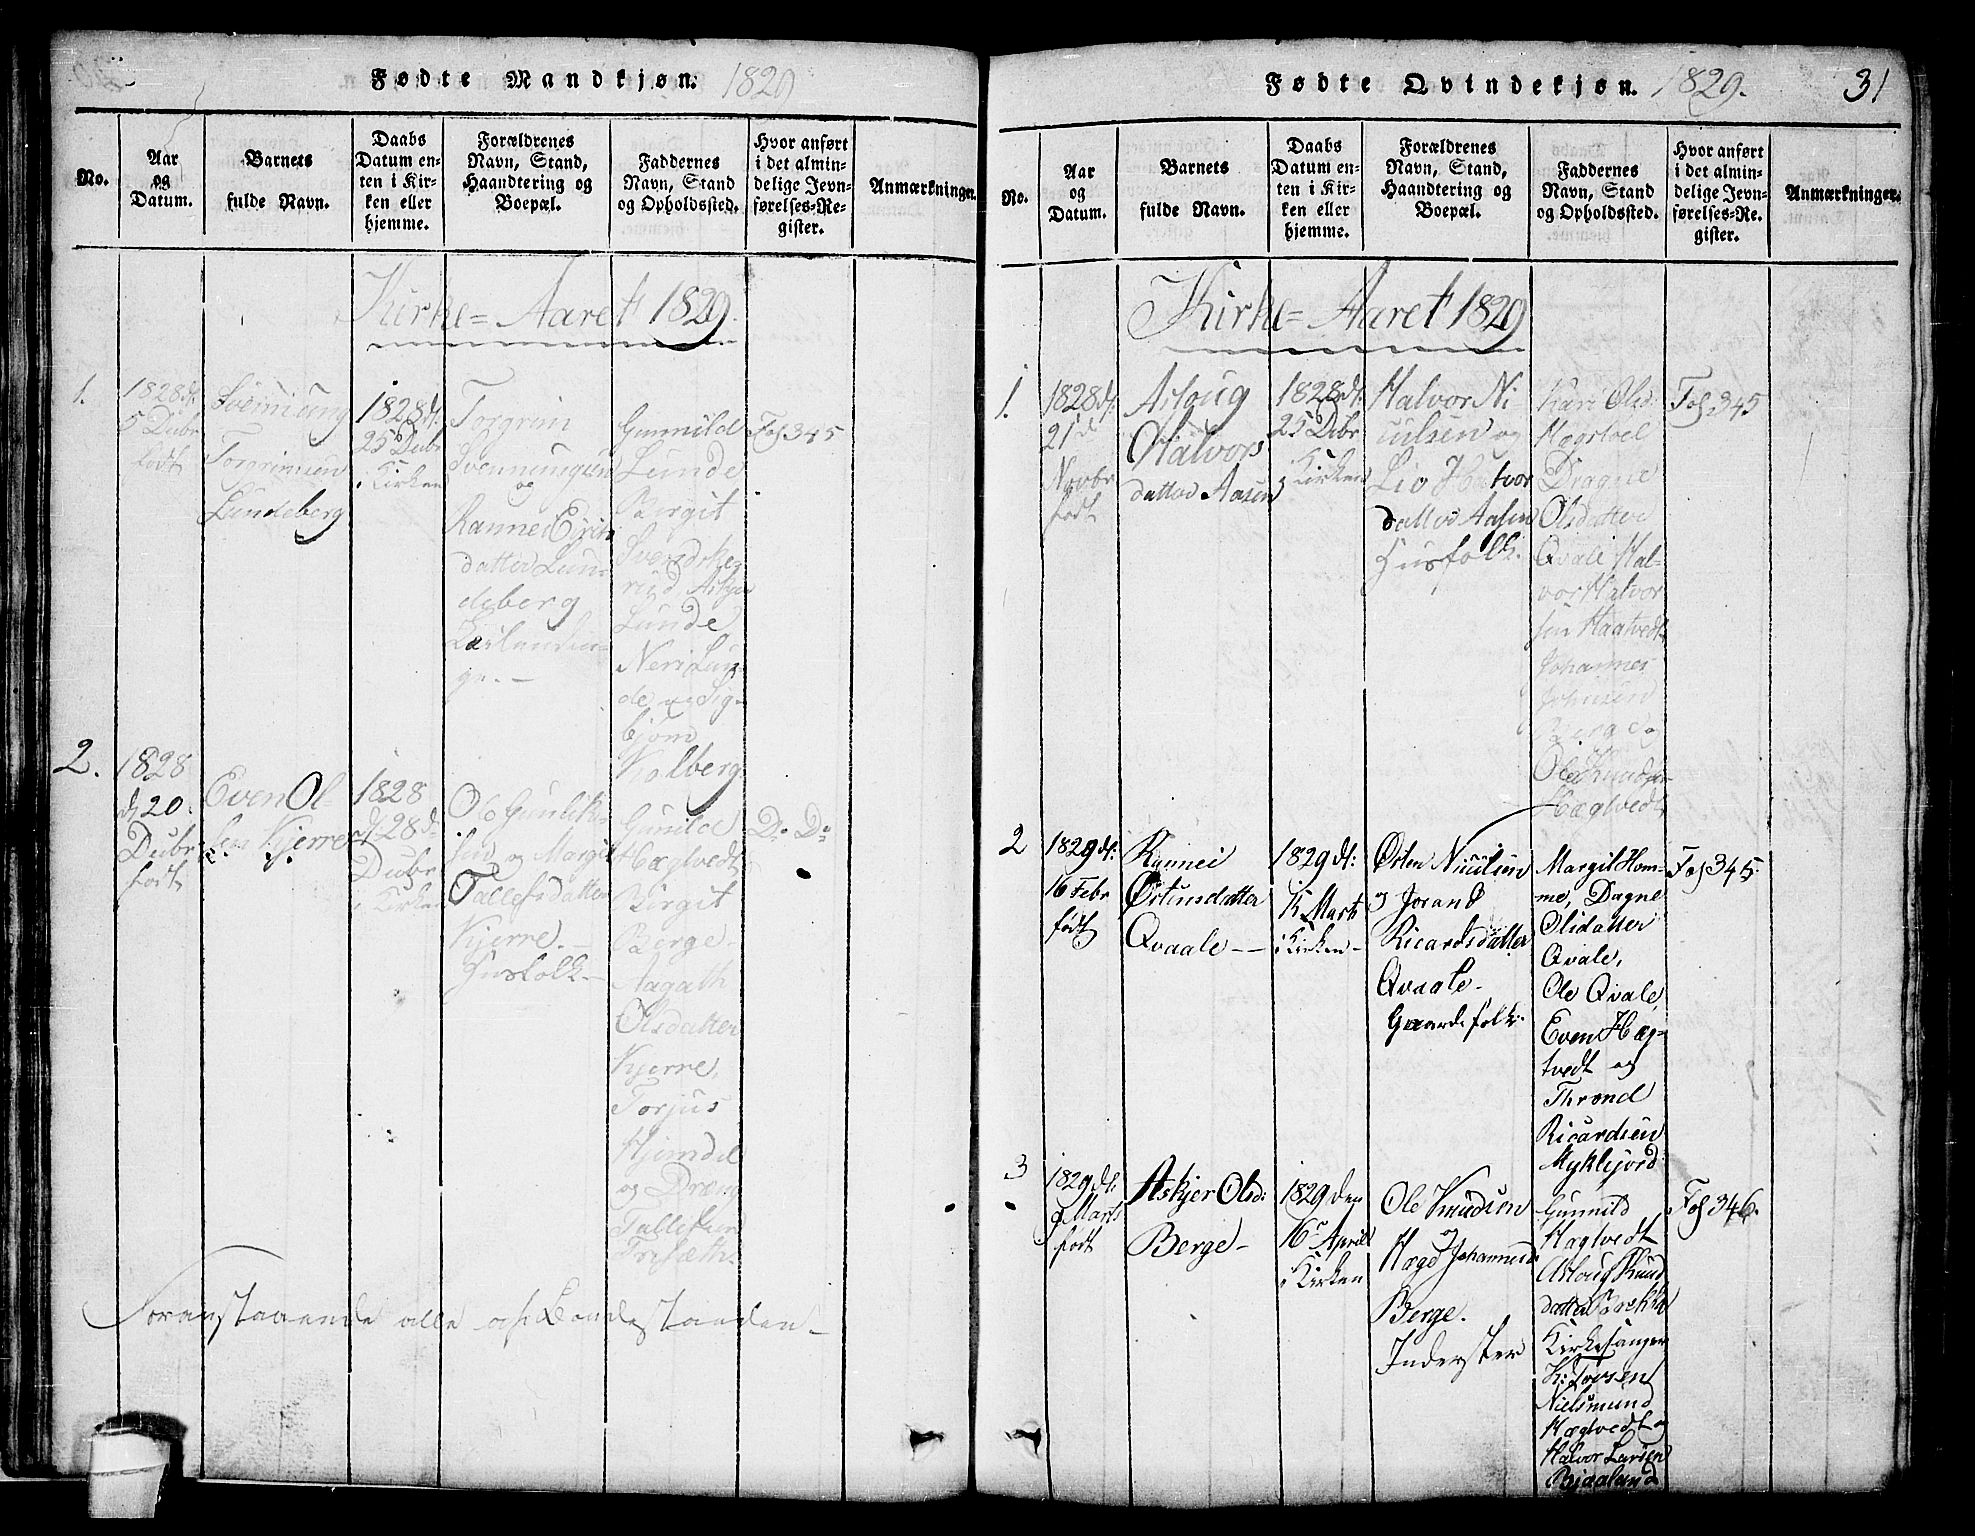 Fødte Mandkjøn. 1829
No.
Aar
og
Datum.
Barnets
fulde Navn.
Daabs
Datum en-
ten i Kir-
ken eller
hjemme.
Forældrenes
Navn, Stand,
Haandtering og
Boepæl.
Faddernes
Navn, Stand
og Opholdssted.
Hvor anført
i det almin-
delige Jevn-
førelses-Re-
gister.
Anmærkninger.
Kirke=Aaret 1829.
1.
1828 d:
5 Dcbr
født
Torgrimsen
Lundeberg
1828 d:
25 Dcbr
i Kirken
Torgrim
og
datter Lun
deberg
Gunnild
Lunde
Bergit
Lunde
Neri Lun-
de og Sig-
bjørn
Kolberg
Fol 345
2.
1828
d 20
Dcbr
født
Even Ol-
sen Kjerre
1828
d 28 d
Dcbr
i Kirken
Ole Gunleks
sen og Margit
Tallefsdatter
Kjerre.
Husfolk
Gunild
Hægtvedt
Birgit
Berge
Aagath
Olsdatter
Kjerre,
Torjus
Hjemdal
og
Do Do
Foranstaaende alle af Bondestanden
Fødte Qvindekjøn. 1829. 31
No.
Aar
og
Datum.
Barnets
fulde Navn.
Daabs
Datum en-
ten i Kir-
ken eller
hjemme.
Forældrenes
Navn, Stand,
Haandtering og
Boepæl.
Faddernes
Navn, Stand
og Opholdssted.
Hvor anført
i det almin-
delige Jevn-
førelses-Re-
gister.
Anmærkninger.
Kirke=Aaret 1829
1.
1828 d:
21 d
Novbr
født
Asloug
Halvors
datter Aasen
1828 d:
25 Dcbr
i Kirken
Halvor Ni
culsen og
Liv Halvor
datter Aasen
Husfolk.
Kari Olsd:
Olsdatter
Qvale Hal-
vor Halvor
sen Haatvedt
Johannes
Johnsen
Berge og
Ole Knudsen
Hægtvedt
Fol 345
2
1829 d:
16 Febr
født
Rannei
Østensdatter
Qvaale
1829 d:
15 Marts
i Kirken
Østen Niculsen
og Jorand
Ricardsdatter
Qvaale
Gaardefolk
Margit Hom-
me, Dagne
Olsdatter
Qvale,
Ole Qvale,
Even Hæg-
tvedt og
Thrond
Ricardsen
Myklejord
Fol 345
3
1829 d:
9 Marts
født
Askjer Olsd:
Berge
1829 den
16 April
i Kirken
Ole Knudsen
og
Hæge Johannesd
Berge.
Inderster
Gunnild
Hægtvedt
Asloug Knud
datter Brekka
Kirkesanger
H: Torsen
Nielsmund
Hægtvedt og
Halvor Larsen
Bjaaland
Fol 346.